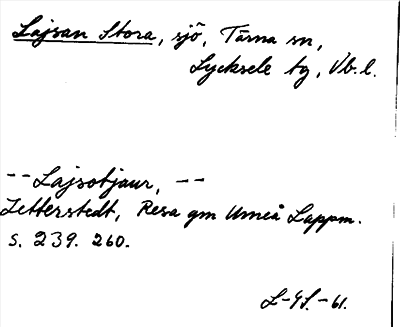 Lajsan Stora, sjö, Tärna sn,
Lycksele tg, Vb. l.
-- Lajsotjaur, --
Zetterstedt, Resa gm Umeå Lappm.
s. 239. 260.
L-GS.-61.